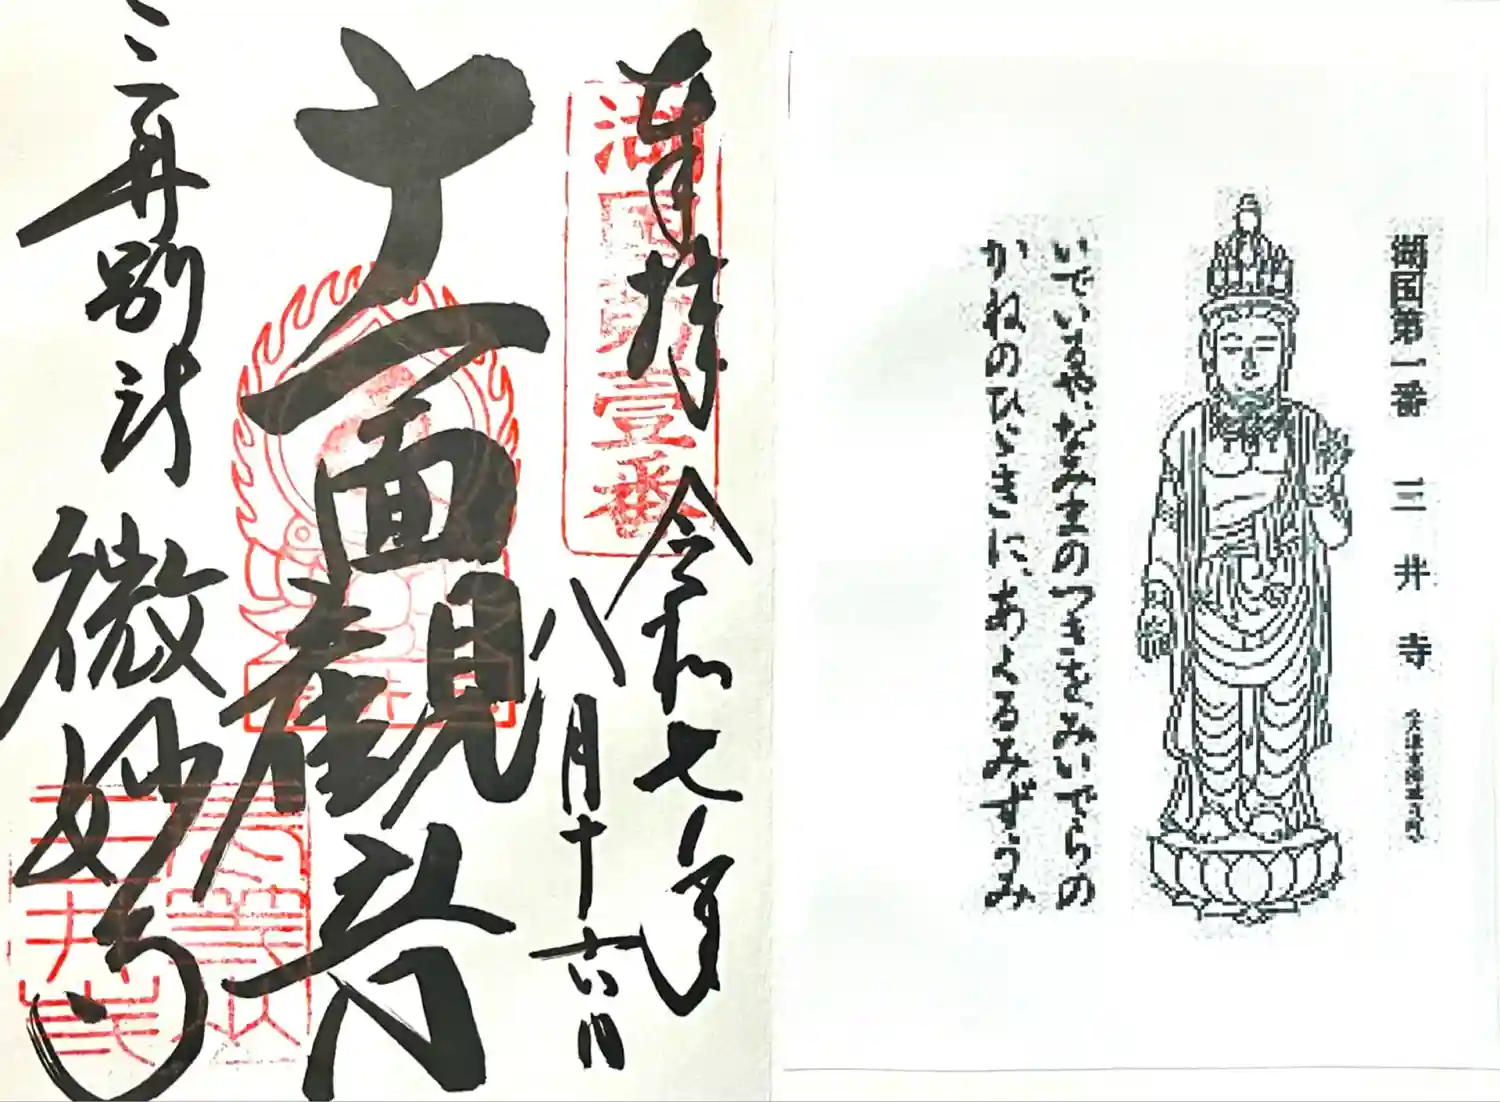 湖国第一番 三井寺
いでいるや、なみまのつきをみいでらの
かねのひゞきに、あくるみずうみ
奉拝 令和七年
八月十六日
湖国第壹番
十一面観音
三井別所 微妙寺
長等山
三井寺